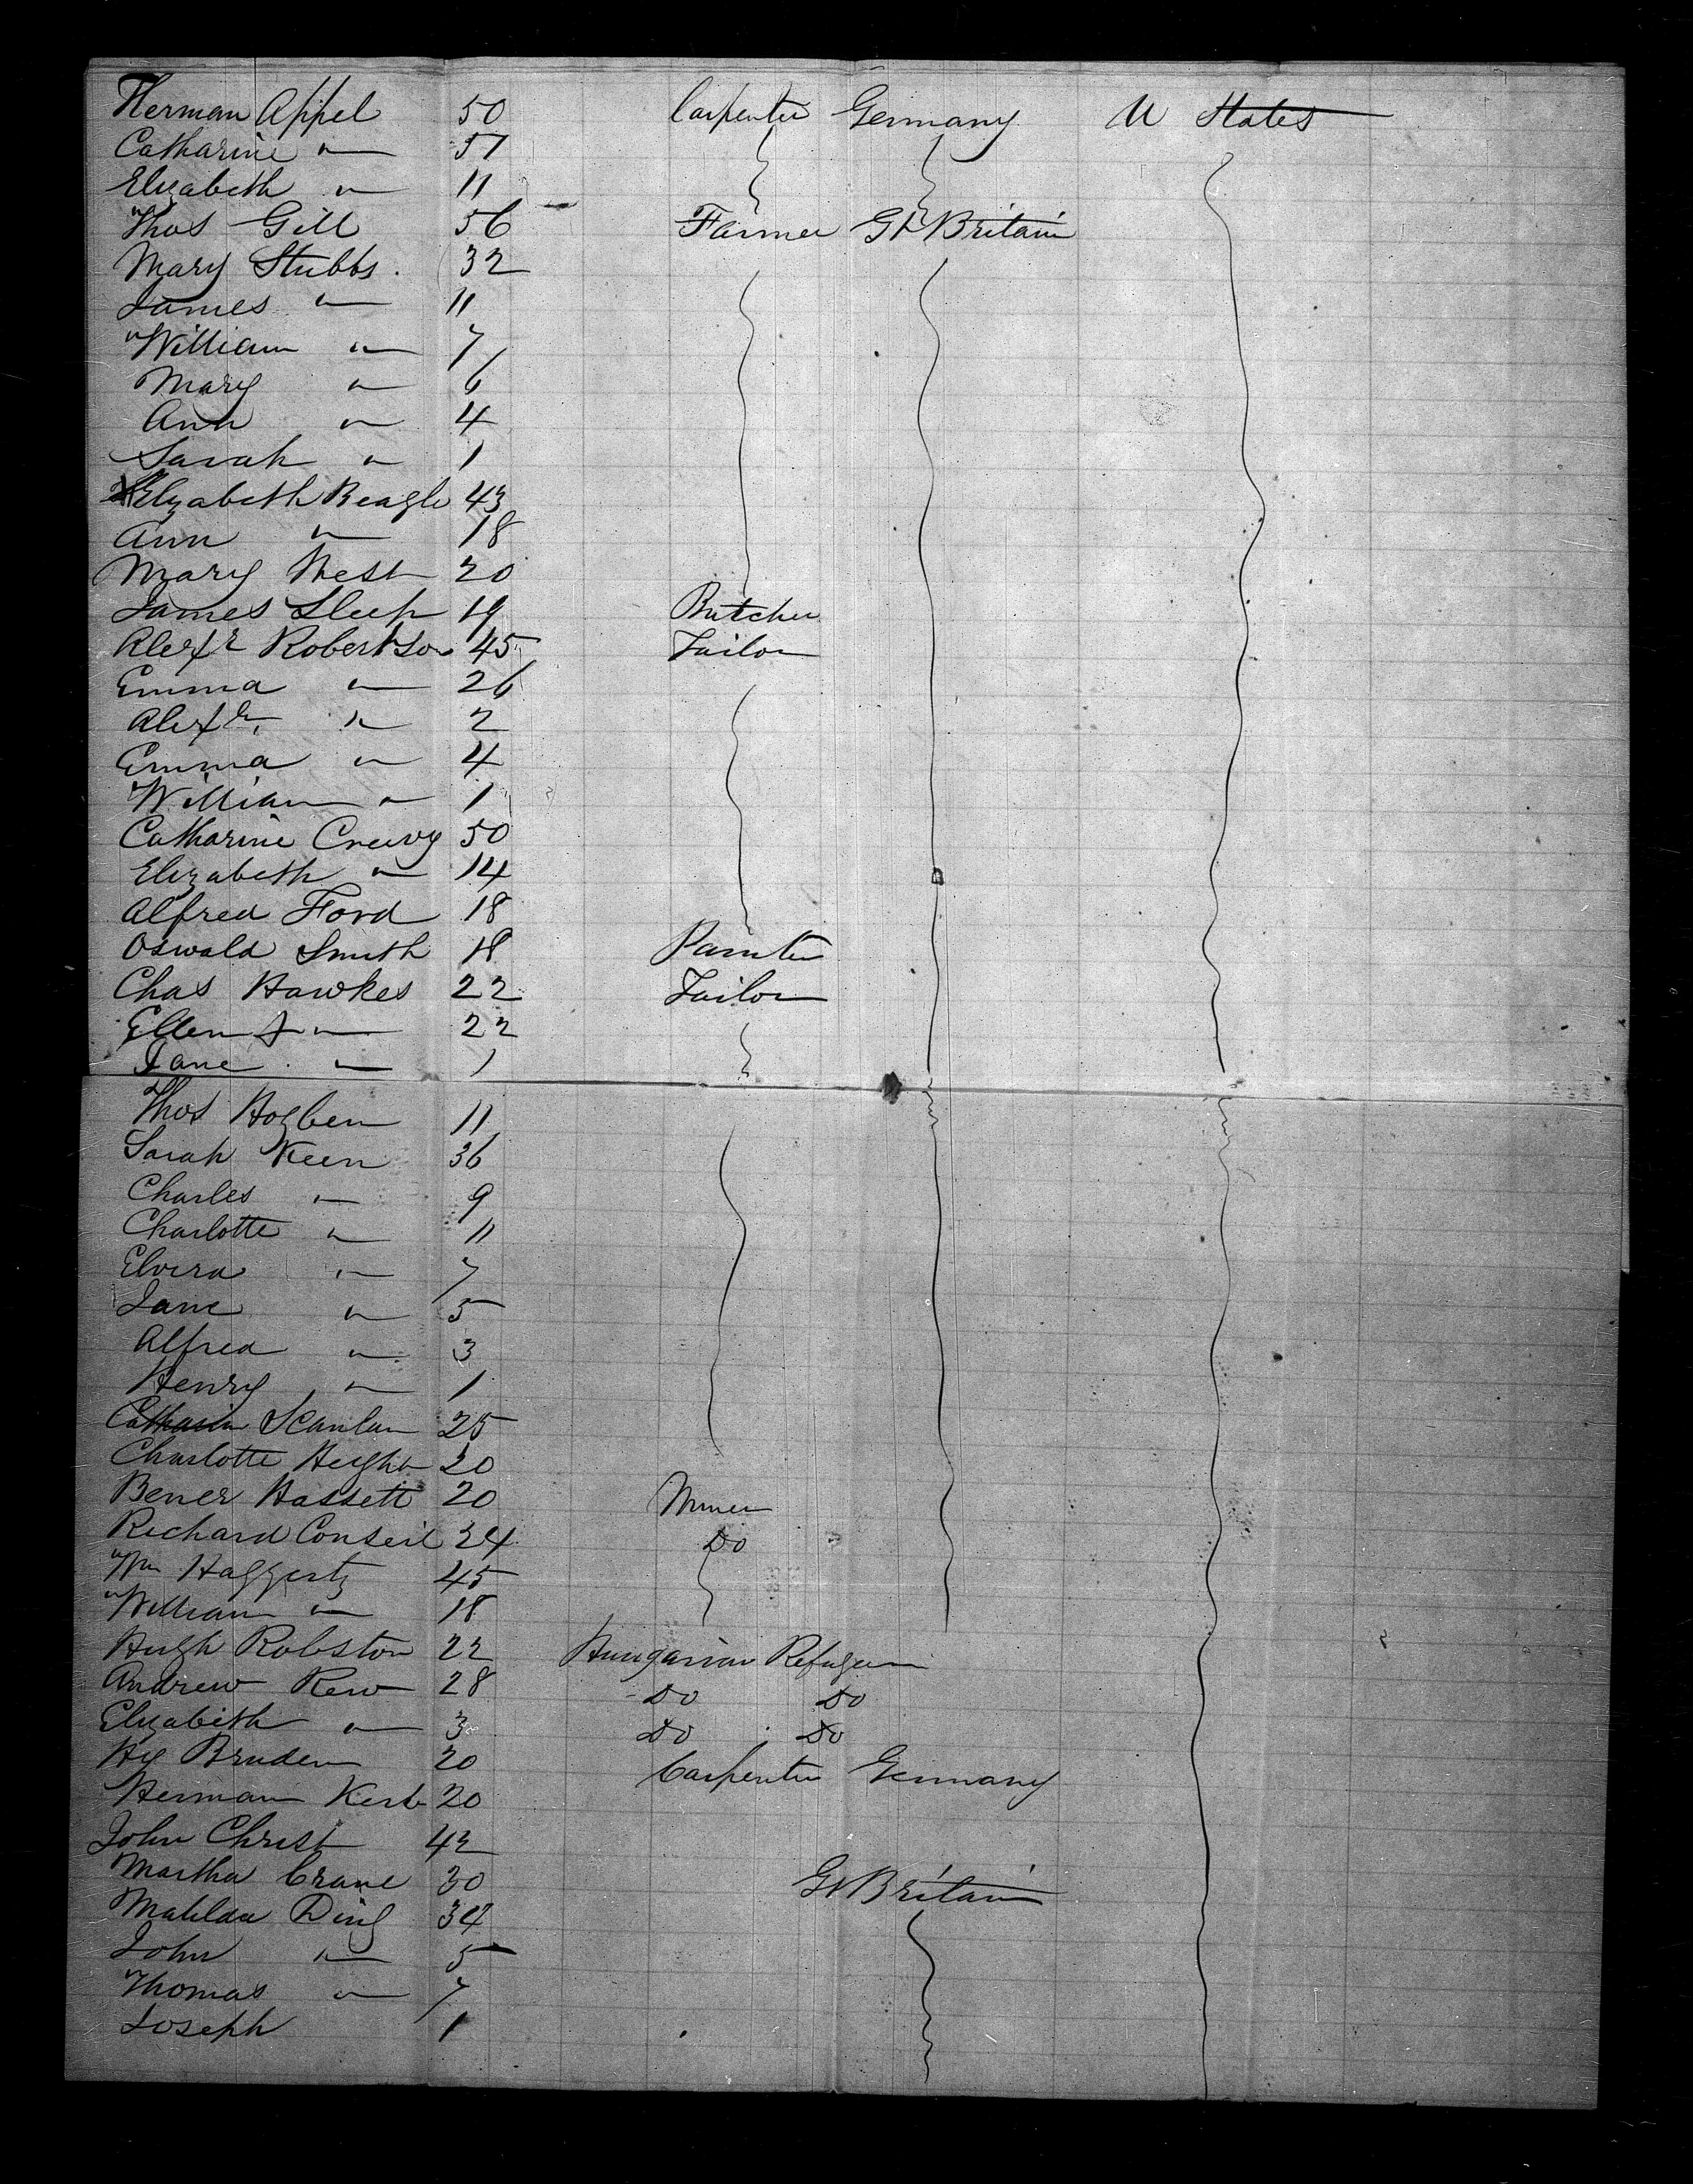 Herman Appel 50 Carpenter Germany U States
Catharine " 57
Elizabeth " 11
Thos Gill 56 Farmer Gt Britain
Mary Stubbs. 32
James " 11
William " 7
Mary " 6
Ann " 4
Sarah " 1
Elizabeth Beagle 43
Ann " 18
Mary West 20
James Sleep 19 Butcher
Alexr Robertson 45 Tailor
Emma " 26
Alexr " 2
Emma " 4
William " 1
Catharine Creevy 50
Elizabeth " 14
Alfred Ford 18
Oswald Smith 18 Painter
Chas Hawkes 22 Tailor
Ellen " 22
Jane " 1
Thos Hogben 11
Sarah Keen 36
Charles " 9
Charlotte " 11
Elvira " 7
Jane " 5
Alfred " 3
Henry " 1
Catharin Scanlan 25
Charlotte Height 20
Bener Hassett 20 Miner
Richard Conseil 24 Do
Wm Haggerty 45
William " 18
Hugh Robston 22 Hungarian Refugee
Andrew Rew 28 Do Do
Elizabeth " 3 Do Do
Hy Bruden 20 Carpenter Germany
Herman Kerb 20
John Christ 42
Martha Crane 30 Gt Britain
Matilda Ding 34
John " 5
Thomas " 7
Joseph 1